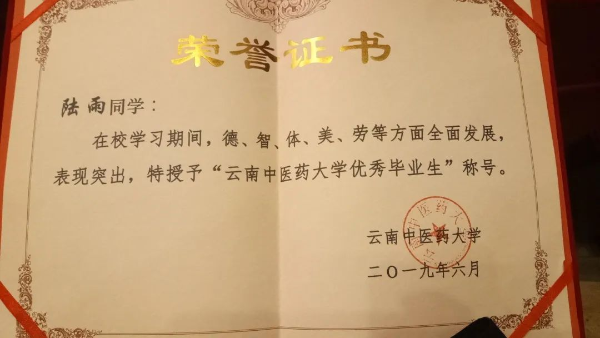 荣誉证书
陆雨同学：
在校学习期间，德、智、体、美、劳等方面全面发展，
表现突出，特授予“云南中医药大学优秀毕业生”称号。
云南中医药大学
二〇一九年六月